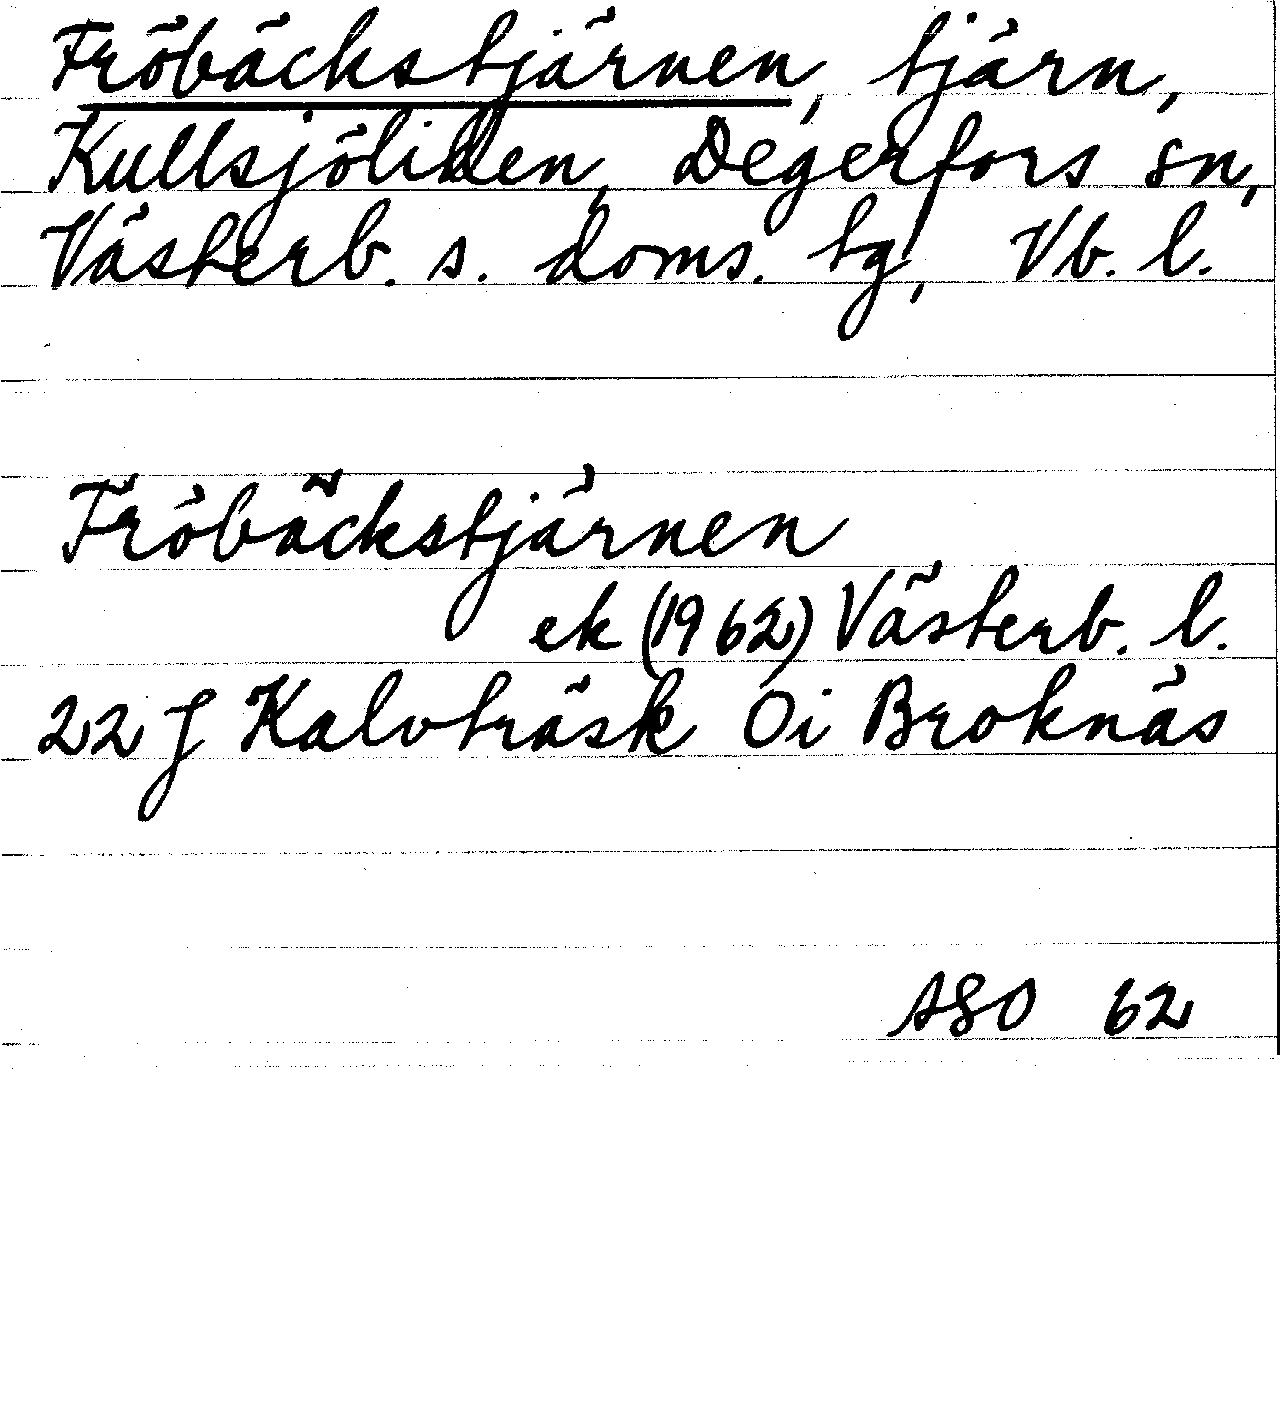 Fröbäckstjärnen, tjärn,
Kullsjöliden, Degerfors sn,
Västerb. s. doms. tg, Vb. l.
Fröbäckstjärnen
ek (1962) Västerb. l.
22 J Kalvträsk Oi Broknäs
ASO 62